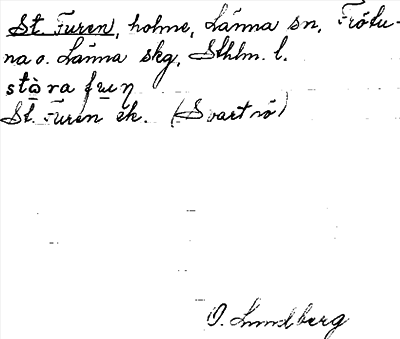 St. Furen, holme, Länna sn, Frötu-
na o. Länna skg, Sthlm. l.
stò̱ra fu̱eŋ
St. Furen ek. (Svartrö)
O. Lundberg